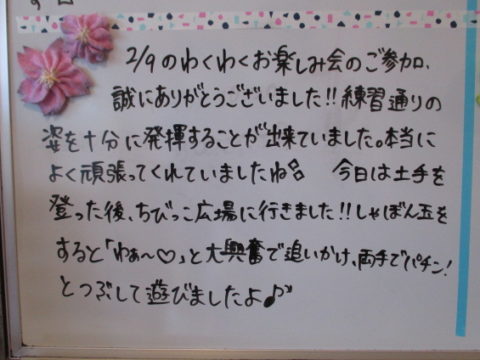 2/9のわくわくお楽しみ会のご参加、
誠にありがとうございました!!練習通りの
姿を十分に発揮することが出来ていました。本当に
よく頑張ってくれていましたね 今日は土手を
登った後、ちびっこ広場に行きました!!しゃぼん玉を
すると「わぁ〜♡」と大興奮で追いかけ、両手でパチン!
とつぶして遊びましたよ♪